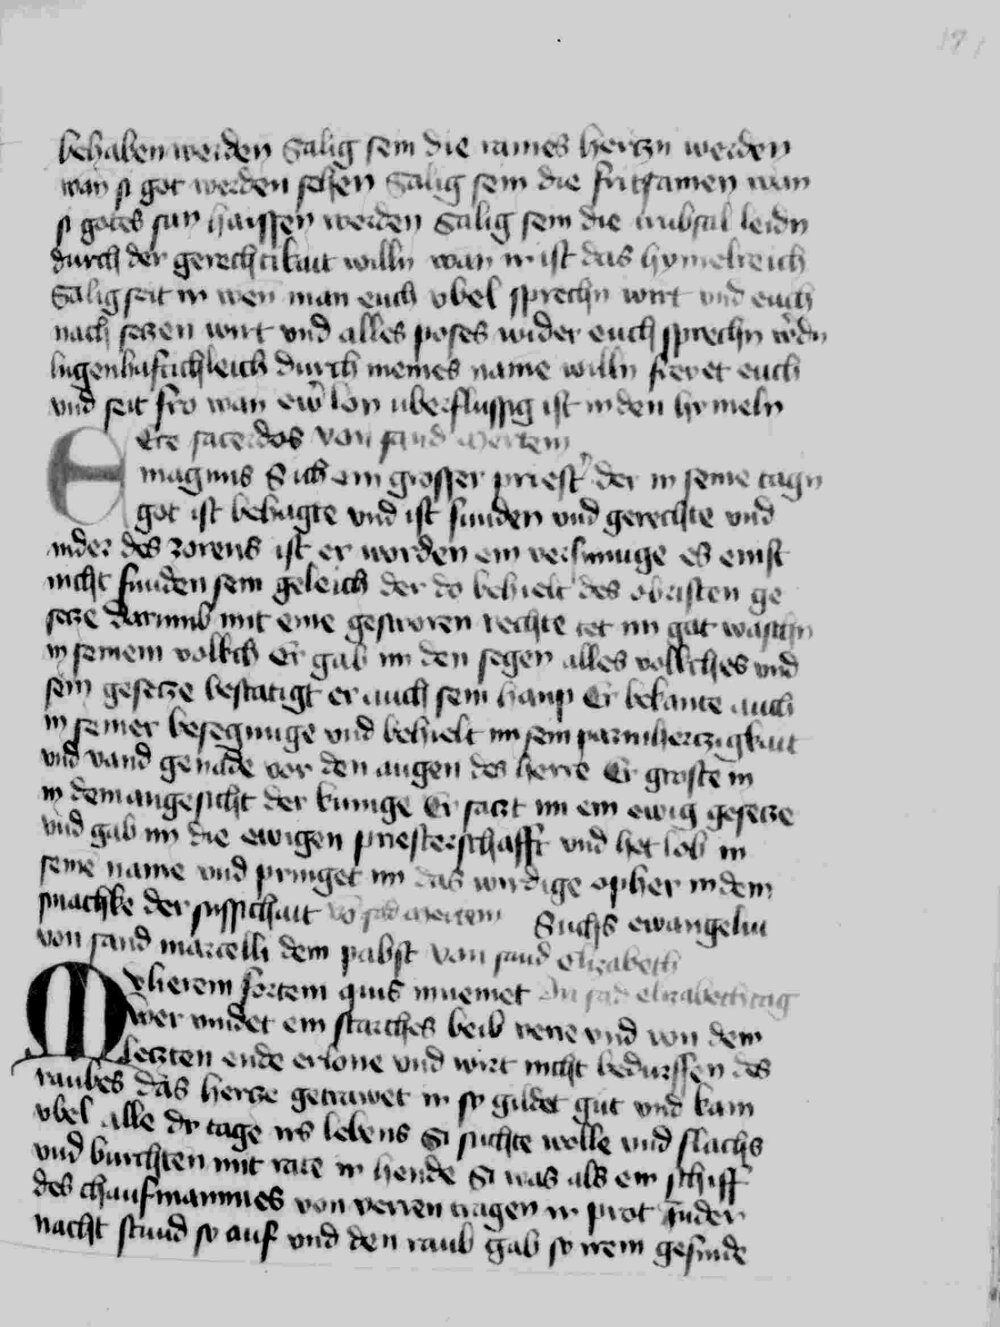 behaben werden Salig sein die raines hertzn werden
wan si got werden sehen Salig sein die fritsamen wan
si gotes sun haissen werden Salig sein die trubsal leidn
durch der gerechtikait willn wan ir ist das hymelreich
Salig seit ir wen man euch vbel sprechn wirt vnd euch
nach seczen wirt vnd alles poses wider euch sprechn w'dn
lugenhaftichleich durch meines name willn frewet euch
vnd seit fro wan ew' lon vberflussig ist in den hymeln
Ecce sacerdos von sand Mertein
magnus Sich ain grosser priest' der in seine tagn
got ist behagte vnd ist funden vnd gerechte vnd
in der des zorens ist er worden ein versunnige es einst
nicht funden sein geleich der do behielt des obristen ge
secze Darumb mit eine gesworen rechte tet im got wachsn
in seinem volkch Er gab im den segen alles volkches vnd
sein gesecze bestatigt er auch sein haup Er bekante auch
in seiner besegnuge vnd behielt im sein parmherczigkait
vnd vand genade vor den augen des herre Er groste in
in dem angesicht der kunige Er saczt im ein ewig gesecze
vnd gab im die ewigen priesterschafft vnd het lob in
seine name vnd pringet im das wirdige opher in dem
smachke der sussichait vo sad Mertein Suchs ewangeliu
von sand marcelli dem pabst von sand elizabeth
Mvlierem fortem quis inueniet An sad elizabeth tag
wer vindet ein starches beib verre vnd von dem
leczten ende er lone vnd wirt nicht bedurffen des
raubes das hercze getrawet ir so gildet gut vnd kain
vbel alle dy tage irs lebens Si suchte wolle vnd flachs
vnd burchten mit rate ir hende Si was als ein schiff
des chaufmannes von verren tragen ir prot In der
nacht stund so auf vnd den raub gab so irem gesinde